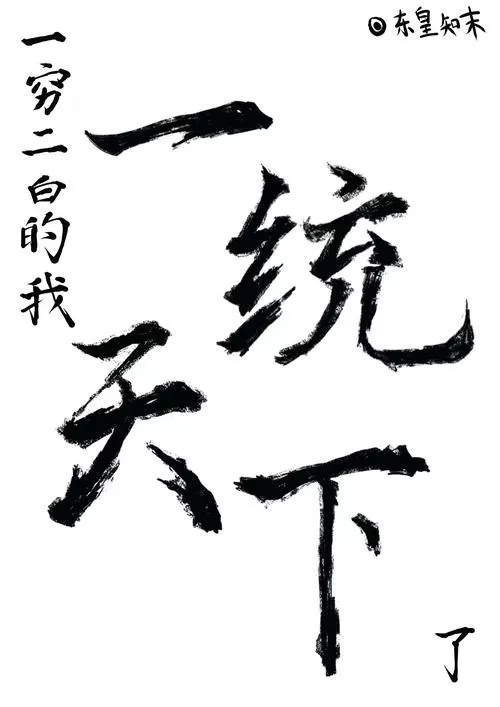 东皇知末
一穷二白的我
一统
天下
了